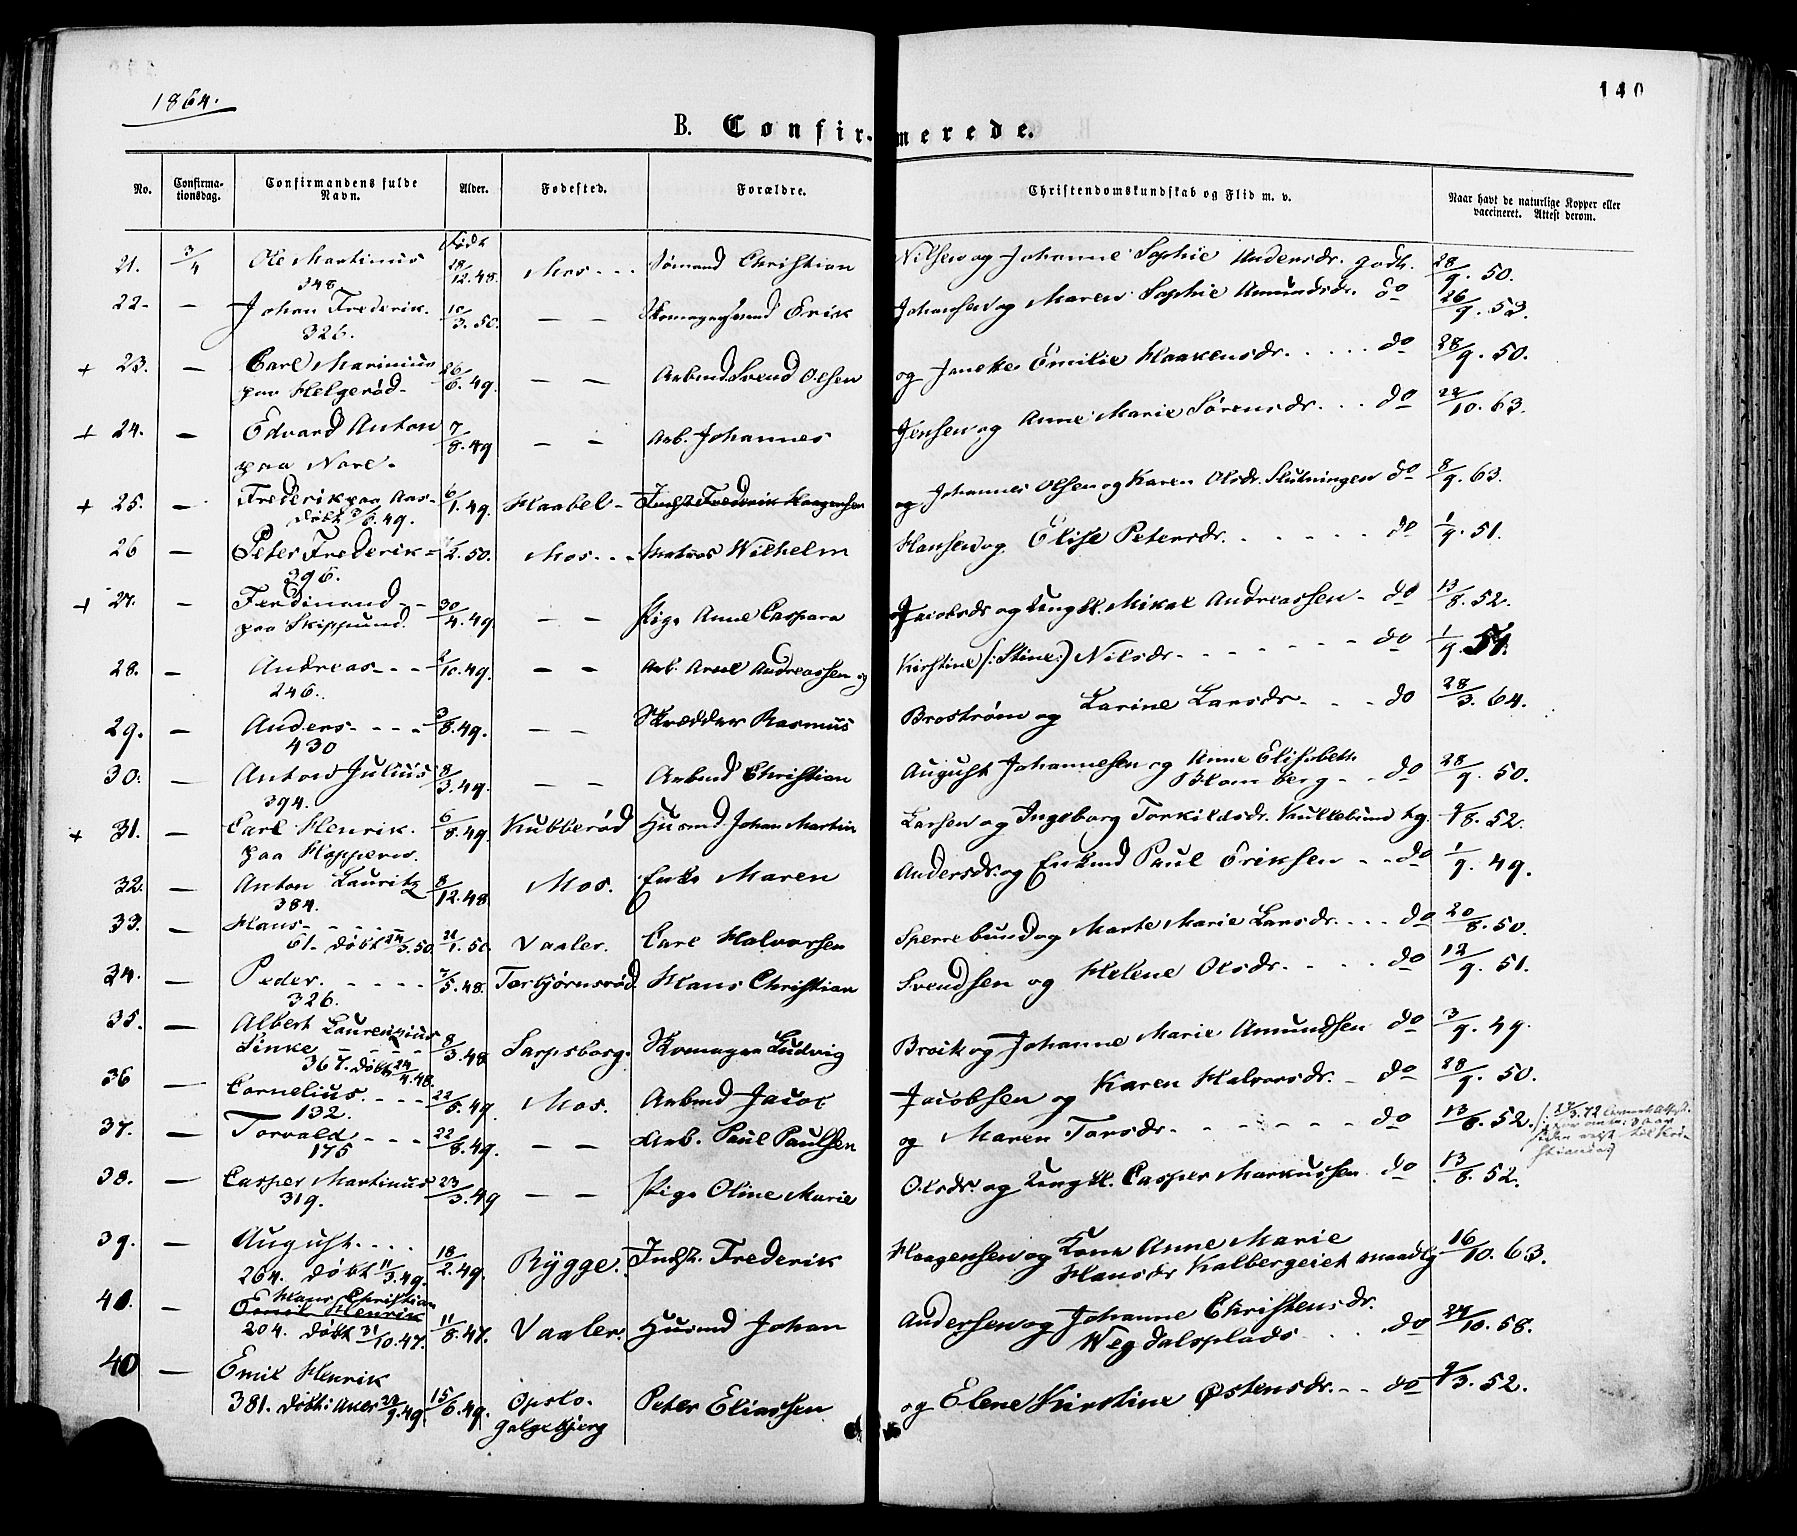 1864.
140
B. Confirmerede.
No. Confirmationsdag. Confirmandens fulde Navn. Alder. Fødested. Forældre. Christendomskundskab og Flid m. v. Naar havt de naturlige Kopper eller vaccineret. Attest derom.
Født
21. 3/4 Ole Martinus 28/12.48. Mos Sømand Christian Nilsen og Johanne Sophie Andersdr. godt. 28/9.50.
348
22. — Johan Frederik. 10/3.50. — — Skomagersvend Erik Johansen og Maren Sophie Amundsdr. do 26/9.53.
326.
+ 23. — Carl Marinius 26/6.49. — — Arbmd Svend Olsen og Emilie Haakensdr. do 28/9.50.
paa Helgerød
+ 24. — Edvard Anton 7/8.49 — — Arb. Johannes Jensen og Anne Marie Sørensdr. do 22/10.63.
paa Nore
+ 25. — Frederik paa Aas 6/1.49. Haabel Indst. Frederik Haagensen og Johannes Olsen og Karen Olsdr. Slutningen do 8/9.63.
døbt 3/6.49.
26 — Peter Frederik 2.50. Mos Matros Wilhelm Hansen og Elise Petersdr. do 1/9.51.
396.
+ 27. — Ferdinand 30/4.49. — — Pige Anne Caspara Jacobsdr og Ungk. Mikal Andreassen do 13/8.52.
paa Skipsund.
28. — Andreas 10.49. — — Arb. Andreassen og Kirstine (:Stine:) Nilsdr. do 1/9.51.
246.
29. — Anders 3/8.49. — — Skrædder Rasmus Brostrøm og Larine Larsdr. do 28/3.64.
430
30. — Anton Julius 8/3.49. — — Arbmd Christian August Johannesen og Anne Elisabeth Blomberg do 28/9.50.
394.
+ 31. — Carl Henrik. 6/8.49. Kubberød Husmd Johan Martin Larsen og Ingeborg Torkildsdr. tg. 8.52.
paa Hoppern.
32. — Anton Lauritz 8/12.48 Mos. Enke Maren Andersdr. og Enkmd Paul Eriksen do 1/9.49.
384.
33. — Hans 21/1.50. Vaaler. Carl Halvorsen Sperrebund og Marte Marie Larsdr. do 20/8.50.
61. døbt 24/3.50.
34. — Peder. 7/5.48. Torbjørnsrød. Hans Christian Svendsen og Helene Olsdr. do 12/9.51.
326.
35. — Albert Laurenzius 8/3.48 Sarpsborg. Skomager Ludvig Broik og Johanne Marie Amundsen do 3/9.49.
Linke
367. døbt 24/4.48.
36 — Cornelius. 22/5.49. Mos. Arbmd Jacob Jacobsen og Karen Halvorsdr. do 28/9.50.
132.
37. — Torvald 22/8.49. — — Arb. Paul Paulsen og Maren Torsdr. do 13/8.52.
175
38. — Casper Martinus 23/3.49 — — Pige Oline Marie Olsdr. og Ungk. Casper Markussen do 13/8.52.
319.
39. — August. 18/2.49. Rygge. Indst. Frederik Haagensen og Kone Anne Marie Hansdr Kalbergeiet maadlg 16/10.63.
264. døbt 11/3.49.
41. — Hans Christian 11/8.47. Vaaler. Husmd Johan Andersen og Johanne Christensdr. Wegdalsplads do 24/10.58.
Emil Henrik
204. døbt 31/10.47.
40 — Emil Henrik 15/6.49. Opslo. Peter Eliassen og Elene Kirstine Østensdr. do 3.52.
381. døbt: Aker 9.49 Galgebjerg